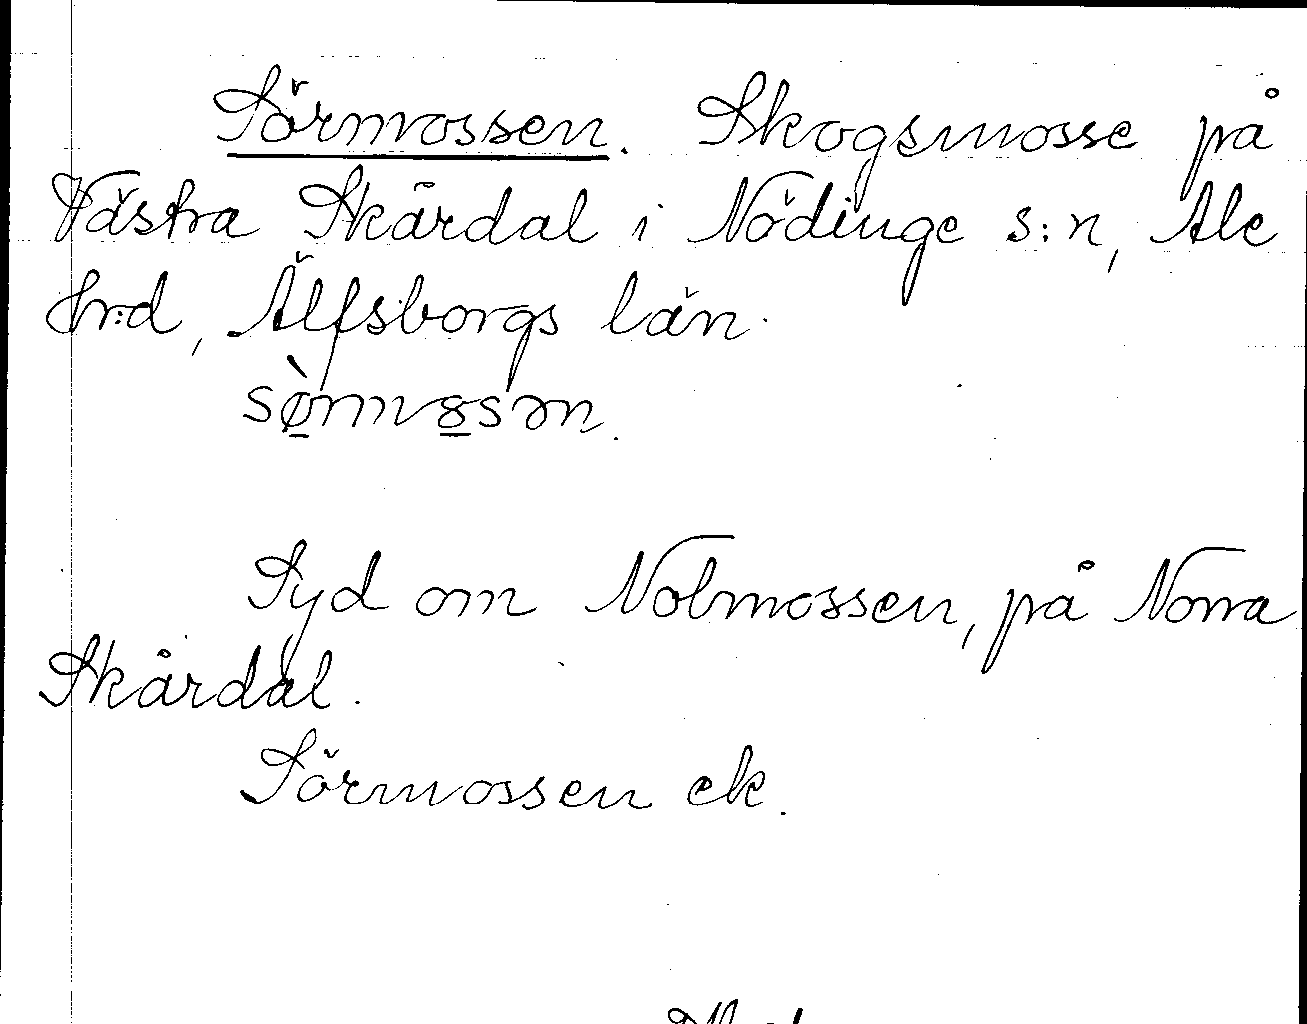 Sörmossen. Skogsmosse på
Västra Skårdal i Nödinge s:n, Ale
hr:d, Älfsborgs län.
sø̀rmɞsən.
Syd om Nolmossen, på Norra
Skårdal.
Sörmossen ek.